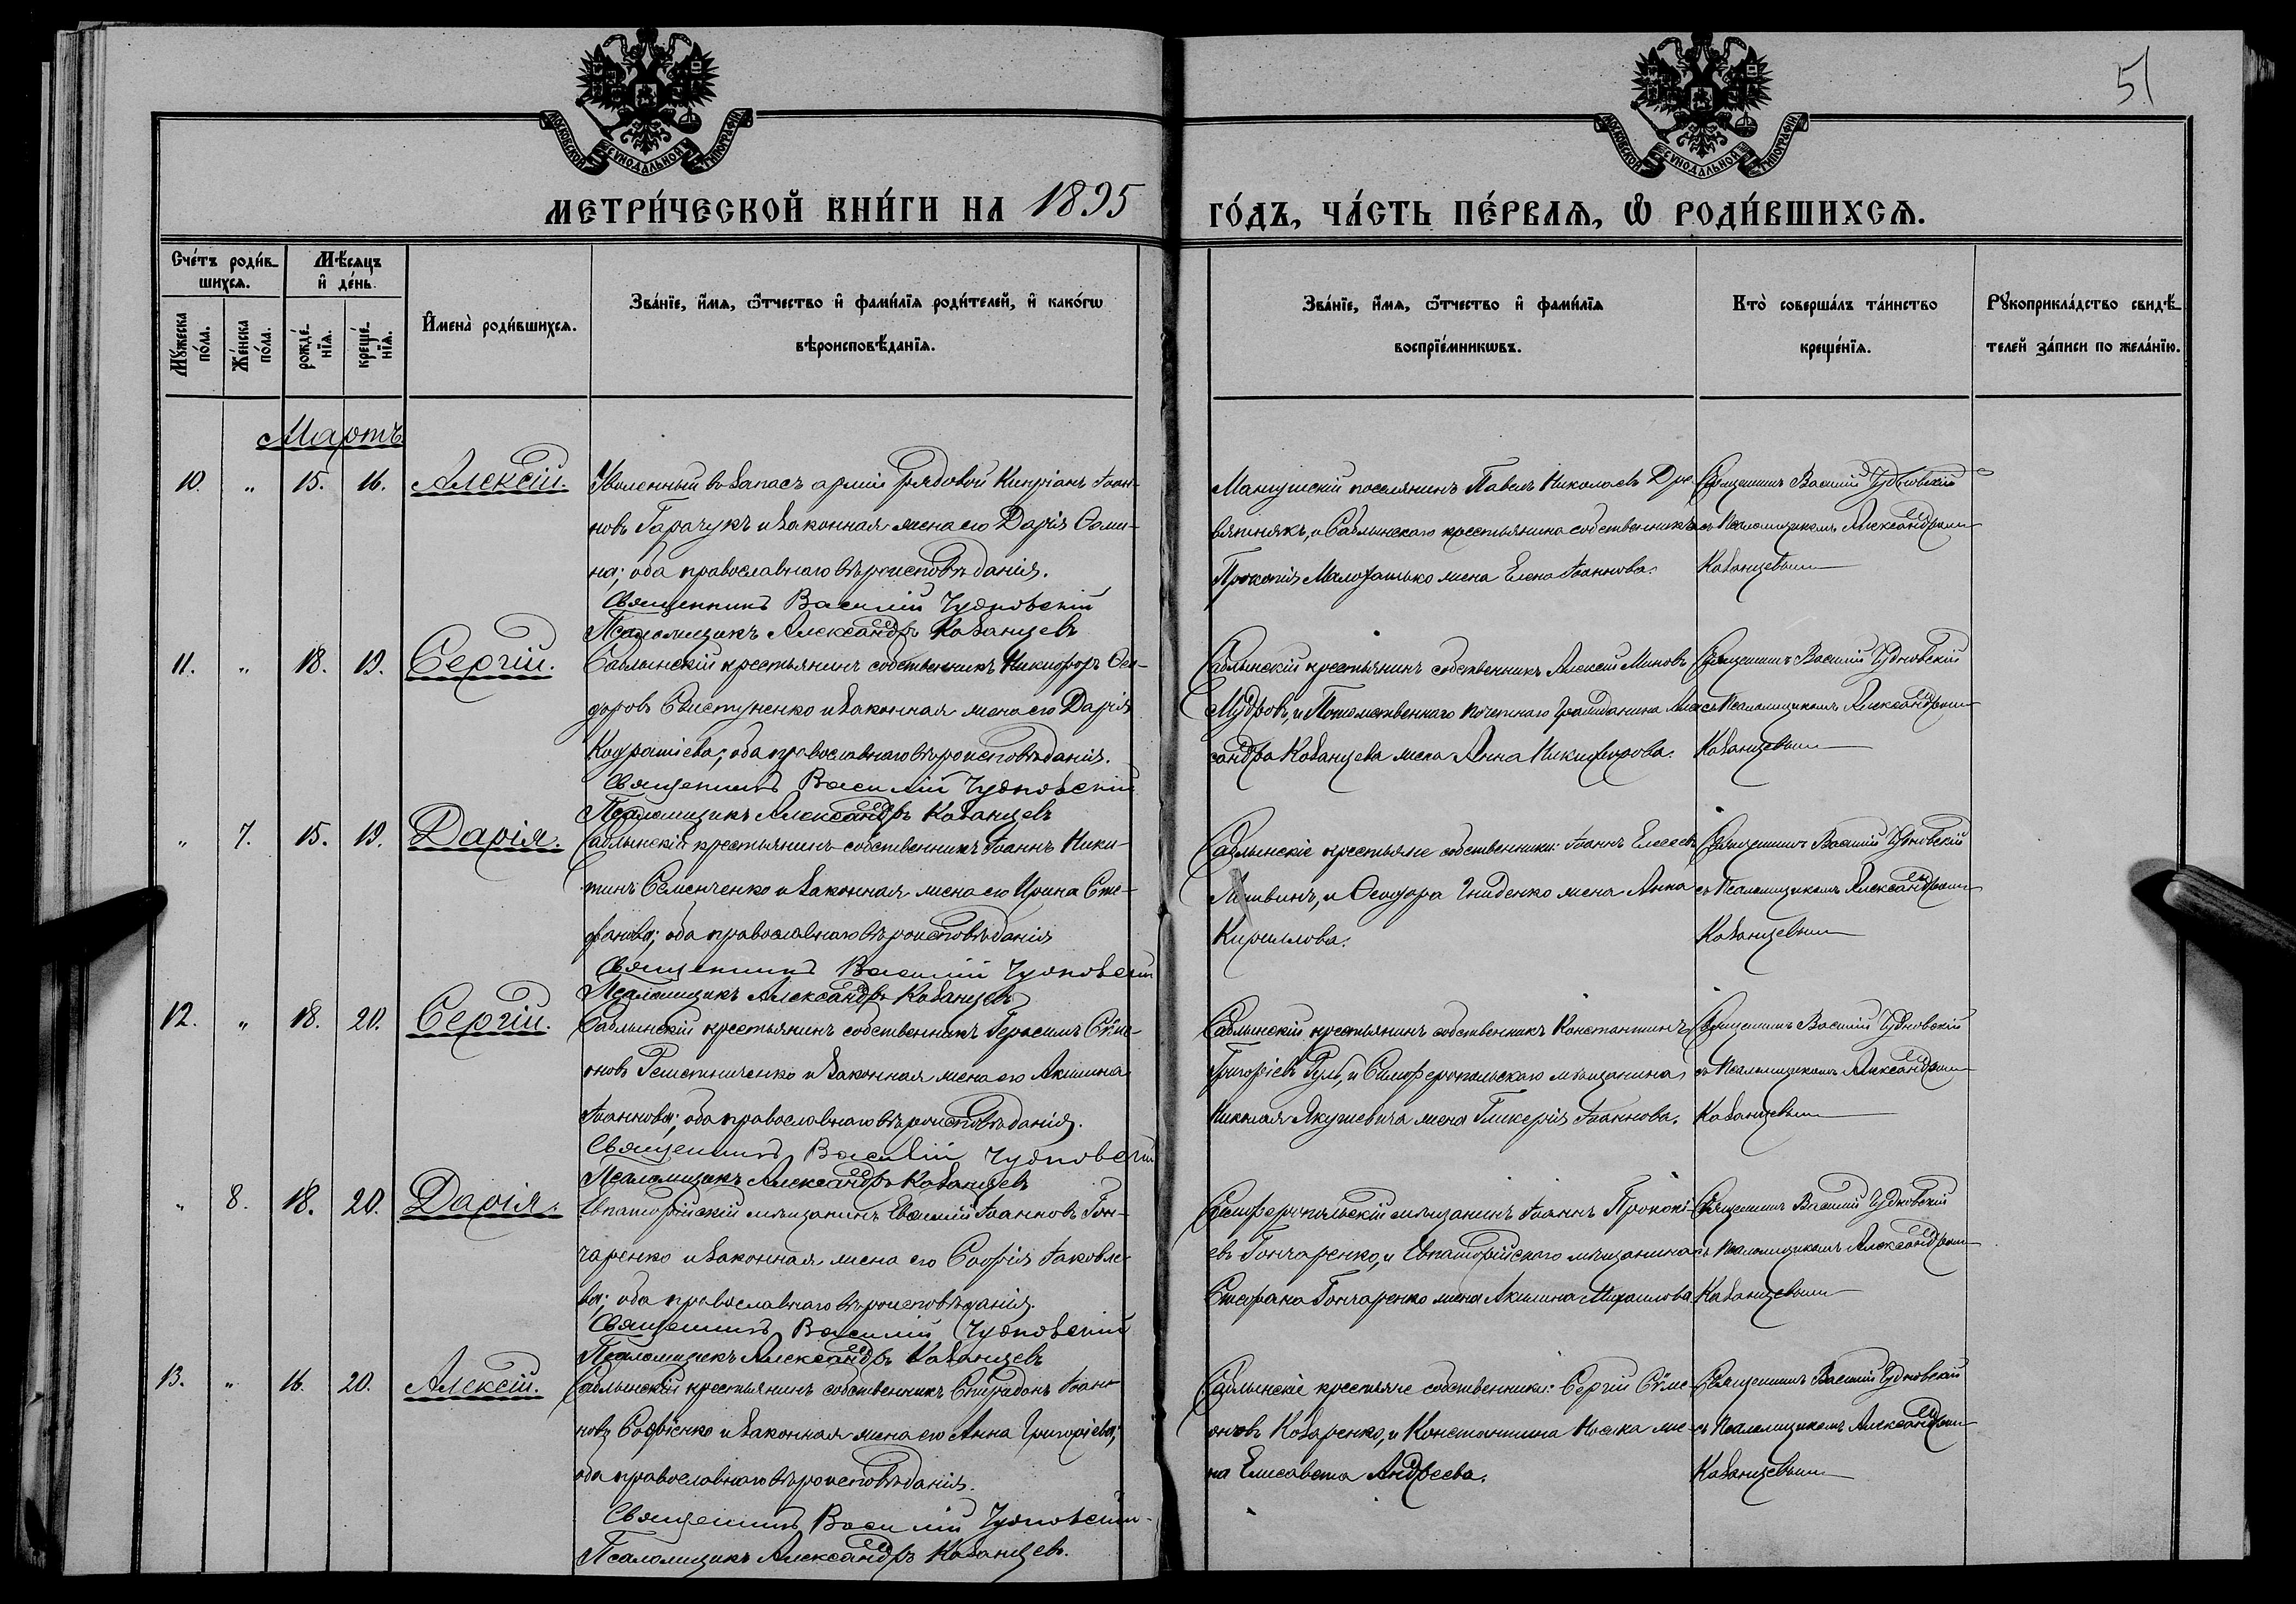 51
МОСКОВСКОЙ СУНОДАЛЬНОЙ ТИПОГРАФІИ
МОСКОВСКОЙ СУНОДАЛЬНОЙ ТИПОГРАФІИ
МЕТРИ́ЧЕСКОЙ КНИ́ГИ НА 1895 ГО́ДЪ, ЧА́СТЬ ПЕ́РВАѦ, Ѡ РОДИ́ВШИХСѦ.
Сче́тъ роди́в-
шихсѧ.
Мѣ́сѧцъ
и҆ де́нь.
Мꙋ́жеска
по́ла.
Же́нска
по́ла.
рожде́-
нїѧ.
креще́-
нїѧ.
И҆мена̀ роди́вшихсѧ.
Зва́нїе, и҆́мѧ, ѻ҆́тчество и҆ фами́лїѧ роди́телей, и҆ како́гѡ
вѣроисповѣ́данїѧ.
Зва́нїе, и҆́мѧ, ѻ҆́тчество и҆ фами́лїѧ
воспрїе́мникѡвъ.
Кто̀ соверша́лъ та́инство
креще́нїѧ.
Рꙋкоприкла́дство свидѣ́-
телей за́писи по жела́нїю.
Мартъ
10. " 15. 16. Алексій. Уволенный въ запасъ арміи рядовой Кипріанъ Іоан-
новъ Гарачукъ и законная жена его Дарія Сами-
на; оба православнаго вѣроисповѣданія.
Священникъ Василій Чудновскій
Псаломщикъ Александръ Казанцевъ
Мангушскій поселянинъ Павелъ Николаевъ Дре-
вятнякъ, и Саблынскаго крестьянина собственника
Прокопія Малофатько жена Елена Іоаннова.
Священникъ Василій Чудновскій
съ Псаломщикомъ Александромъ
Казанцевымъ
11. " 18. 19. Сергій. Саблынскій крестьянинъ собственникъ Никифоръ Ѳео-
доровъ Свистуненко и законная жена его Дарія
Кодратіева; оба православнаго вѣроисповѣданія.
Священникъ Василій Чудновскій
Псаломщикъ Александръ Казанцевъ
Саблынскій крестьянинъ собственникъ Алексій Миновъ
Мудровъ, и Потомственнаго почетнаго гражданина Алек-
сандра Казанцева жена Анна Никифорова.
Священникъ Василій Чудновскій
съ Псаломщикомъ Александромъ
Казанцевымъ
" 7. 15. 19. Дарія. Саблынскій крестьянинъ собственникъ Іоаннъ Ники-
тинъ Семенченко и законная жена его Ирина Сте-
фанова; оба православнаго вѣроисповѣданія
Священникъ Василій Чудновскій
Псаломщикъ Александръ Казанцевъ
Саблынскіе крестьяне собственники: Іоаннъ Елисеевъ
Литвинъ, и Ѳеодора Гниденко жена Анна
Кириллова.
Священникъ Василій Чудновскій
съ Псаломщикомъ Александромъ
Казанцевымъ
12. " 18. 20. Сергій. Саблынскій крестьянинъ собственникъ Герасимъ Сѵме-
оновъ Решетниченко и законная жена его Акилина
Іоаннова; оба православнаго вѣроисповѣданія.
Священникъ Василій Чудновскій
Псаломщикъ Александръ Казанцевъ
Саблынскій крестьянинъ собственникъ Константинъ
Григоріевъ Гуль, и Симферопольскаго мѣщанина
Николая Якушевича жена Гликерія Іоаннова.
Священникъ Василій Чудновскій
съ Псаломщикомъ Александромъ
Казанцевымъ
" 8. 18. 20. Дарія. Евпаторійскій мѣщанинъ Евѳимій Іоанновъ Гон-
чаренко и законная жена его Софія Іаковле-
ва; оба православнаго вѣроисповѣданія.
Священникъ Василій Чудновскій
Псаломщикъ Александръ Казанцевъ
Симферопольскій мѣщанинъ Іоаннъ Прокопі-
евъ Гончаренко, и Евпаторійскаго мѣщанина
Стефана Гончаренко жена Акилина Михаилова
Священникъ Василій Чудновскій
съ Псаломщикомъ Александромъ
Казанцевымъ
13. " 16. 20. Алексій. Саблынскій крестьянинъ собственникъ Спиридонъ Іоан-
новъ Софіенко и законная жена его Анна Григоріева;
оба православнаго вѣроисповѣданія.
Священникъ Василій Чудновскій
Псаломщикъ Александръ Казанцевъ.
Саблынскіе крестьяне собственники: Сергій Сѵме-
оновъ Козаренко, и Константина Носика же-
на Елисавета Андреева.
Священникъ Василій Чудновскій
съ Псаломщикомъ Александромъ
Казанцевымъ